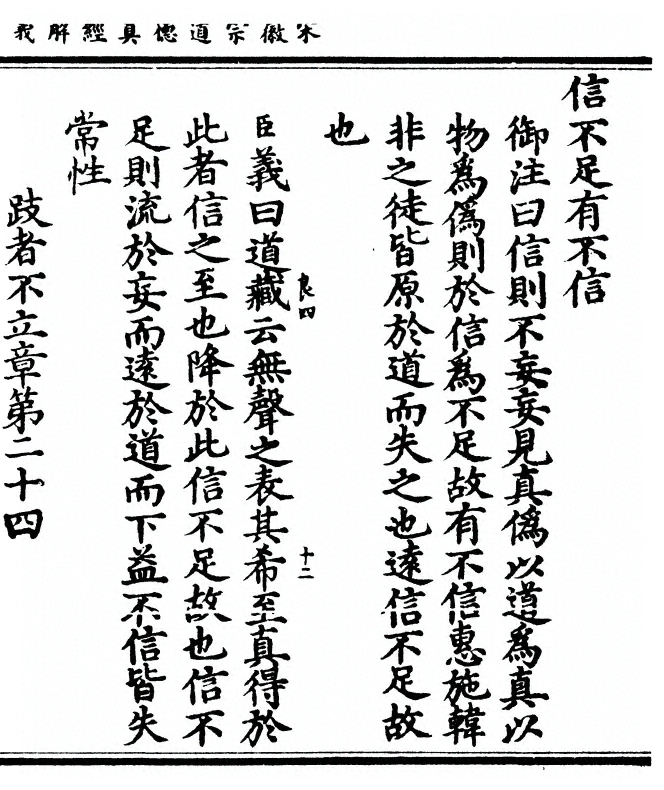 宋徽宗道德真經解義
信不足有不信
御注曰信則不妄妄見真僞以道爲真以
物爲僞則於信爲不足故有不信惠施韓
非之徒皆原於道而失之也遠信不足故
也
臣義曰道藏云無聲之表其希至真得於
良四
十二
此者信之至也降於此信不足故也信不
足則流於妄而遠於道而下益不信皆失
常性
跂者不立章第二十四